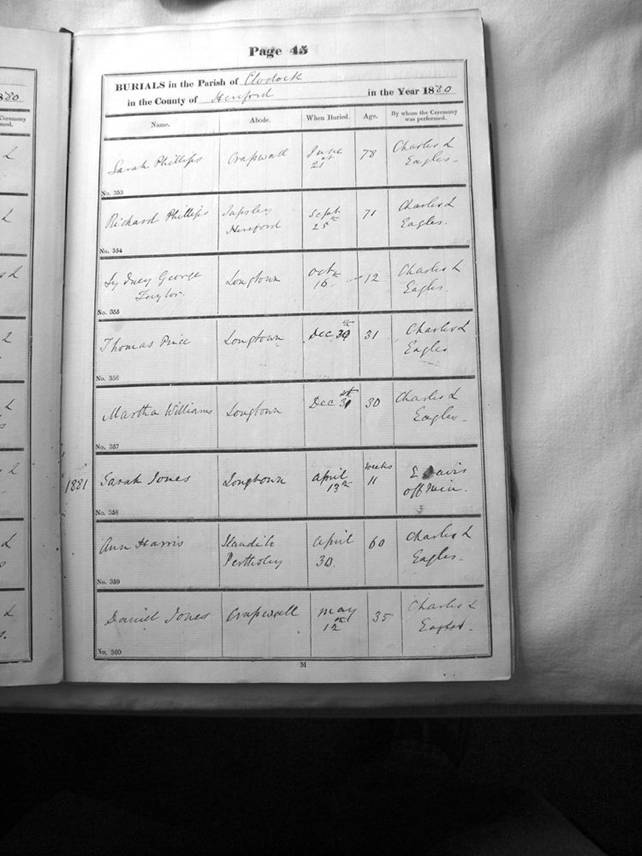 Page 45
BURIALS in the Parish of Clodock
in the County of Hereford in the Year 1880
Name. Abode. When Buried. Age. By whom the Ceremony was performed.
Sarah Phillips Craswall June 21st 78 Charles L Eagles.
No. 353
Richard Phillips Hereford Sept 25th 71 Charles L Eagles.
No. 354
Sydney George Taylor. Longtown Octr 16 12 Charles L Eagles.
No. 355
Thomas Price Longtown Dec 31 Charles L Eagles
No. 356
Martha Williams Longtown Dec 31st 30 Charles L Eagles.
No. 357
1881 Sarah Jones Longtown April weeks 11 E Davis off Min.
No. 358
Ann Harris April 30. 60 Charles L Eagles.
No. 359
Daniel Jones Craswell May 12th 35 Charles L Eagles.
No. 360
M